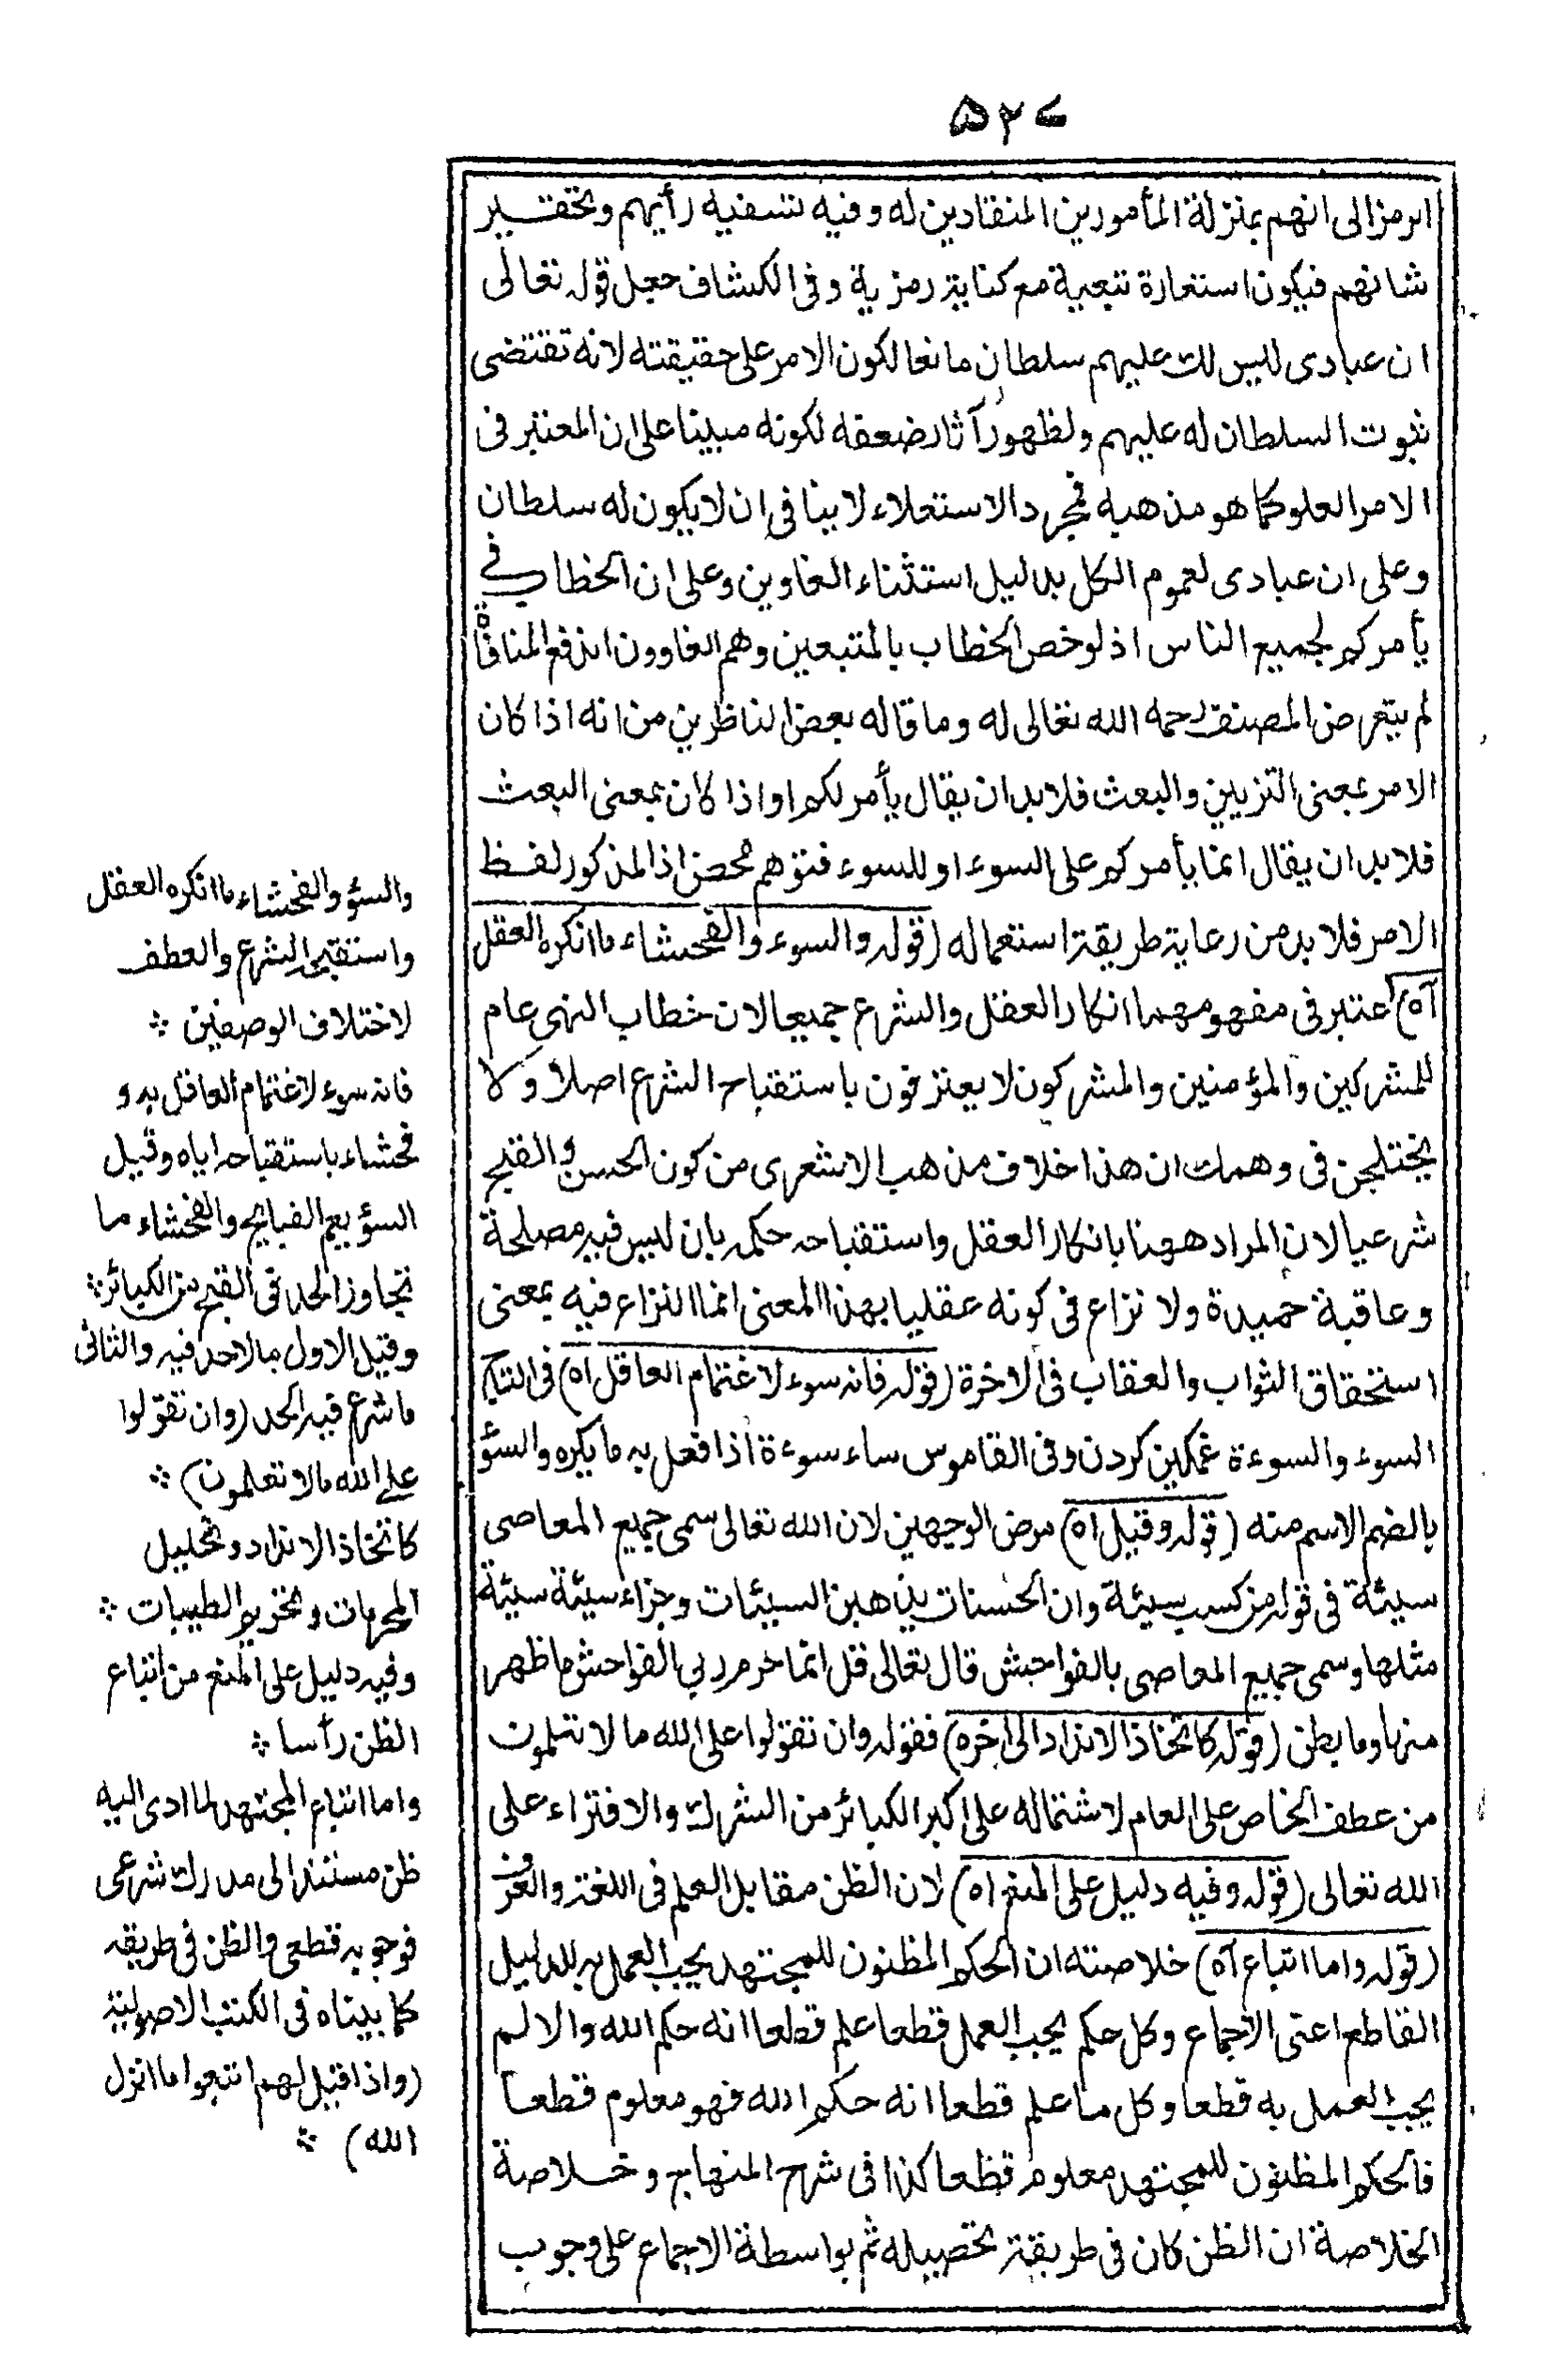 ۵۲۷
الرمز الى انهم بمنزلة المأمورين المنقادين له وفيه تسفيه رأيهم وتحقير
شانهم فيكون استعارة تبعية مع كناية رمزية وفى الكشاف جعل قوله تعالى
ان عبادى ليس لك عليهم سلطان مانعا لكون الامر على حقيقته لانه تقتضى
ثبوت السلطان له عليهم ولظهور آثار ضعفه لكونه مبينا على ان المعتبر فى
الامر العلو كما هو مذهبه فمجرد الاستعلاء لا ينافى ان لا يكون له سلطان
وعلى ان عبادى لعموم الكل بدليل استثناء الغاوين وعلى ان الخطاب في
يأمركم لجميع الناس اذ لو خص الخطاب بالمتبعين وهم الغاوون اندفع المنافاة
لم يتعرض المصنف رحمه الله تعالى له وما قاله بعض الناظرين من انه اذا كان
الامر بمعنى التزيين والبعث فلا بد ان يقال يأمر لكم او اذا كان بمعنى البعث
فلا بد ان يقال انما يأمركم على السوء او للسوء فتوهم محض اذ المذكور لفظ
الامر فلا بد من رعاية طريقة استعماله (قوله والسوء والفحشاء ما انكره العقل
آه) اعتبر فى مفهومهما انكار العقل والشرع جميعا لان خطاب النهى عام
للمشركين والمؤمنين والمشركون لا يعترفون باستقباح الشرع اصلا ولا
يختلجن فى وهمك ان هذا خلاف مذهب الاشعرى من كون الحسن والقبح
شرعيا لان المراد ههنا بانكار العقل واستقباحه حكمه بان ليس فيه مصلحة
وعاقبة حميدة ولا نزاع فى كونه عقليا بهذا المعنى انما النزاع فيه بمعنى
استحقاق الثواب والعقاب فى الاخرة (قوله فانه سوء لاغتمام العاقل اه) فى التاج
السوء والسوءة غمكين كردن وفى القاموس ساء سوءة اذا فعل به ما يكره والسؤ
بالضم الاسم منه (قوله وقيل اه) مرض الوجهين لان الله تعالى سمى جميع المعاصى
سيئة فى قوله من كسب سيئة وان الحسنات يذهبن السيئات وجزاء سيئة سيئة
مثلها وسمى جميع المعاصى بالفواحش قال تعالى قل انما حرم ربي الفواحش ما ظهر
منها وما بطن (قوله كاتخاذ الانداد الى اخره) فقوله وان تقولوا على الله ما لا تعلمون
من عطف الخاص على العام لاشتماله على اكبر الكبائر من الشرك والافتراء على
الله تعالى (قوله وفيه دليل على المنع اه) لان الظن مقابل العلم فى اللغة والعرف
(قوله واما اتباع آه) خلاصته ان الحكم المظنون للمجتهد يجب العمل به للدليل
القاطع اعنى الاجماع وكل حكم يجب العمل قطعا علم قطعا انه حكم الله والا لم
يجب العمل به قطعا وكل ما علم قطعا انه حكم الله فهو معلوم قطعا
فالحكم المظنون للمجتهد معلوم قطعا كذا فى شرح المنهاج وخلاصة
الخلاصة ان الظن كان فى طريقة تحصيله ثم بواسطة الاجماع على وجوب
والسؤ والفحشاء ما انكره العقل
واستقبحه الشرع والعطف
لاختلاف الوصفين ∴
فانه سوء لاغتمام العاقل به و
فحشاء باستقباحه اياه وقيل
السؤ يعم القبايح والفحشاء ما
تجاوز الحد فى القبح من الكبائر ∴
وقيل الاول ما لا حد فيه والثانى
ما شرع فيه الحد (وان تقولوا
على الله ما لا تعلمون) ∴
كاتخاذ الانداد وتحليل
المحرمات وتحريم الطيبات ∴
وفيه دليل على المنع من اتباع
الظن رأسا ∴
واما اتباع المجتهد لما ادى اليه
ظن مستندا لى مدرك شرعى
فوجوبه قطعى والظن فى طريقه
كما بيناه فى الكتب الاصولية
(واذا قيل لهم اتبعوا ما انزل
الله) ∴